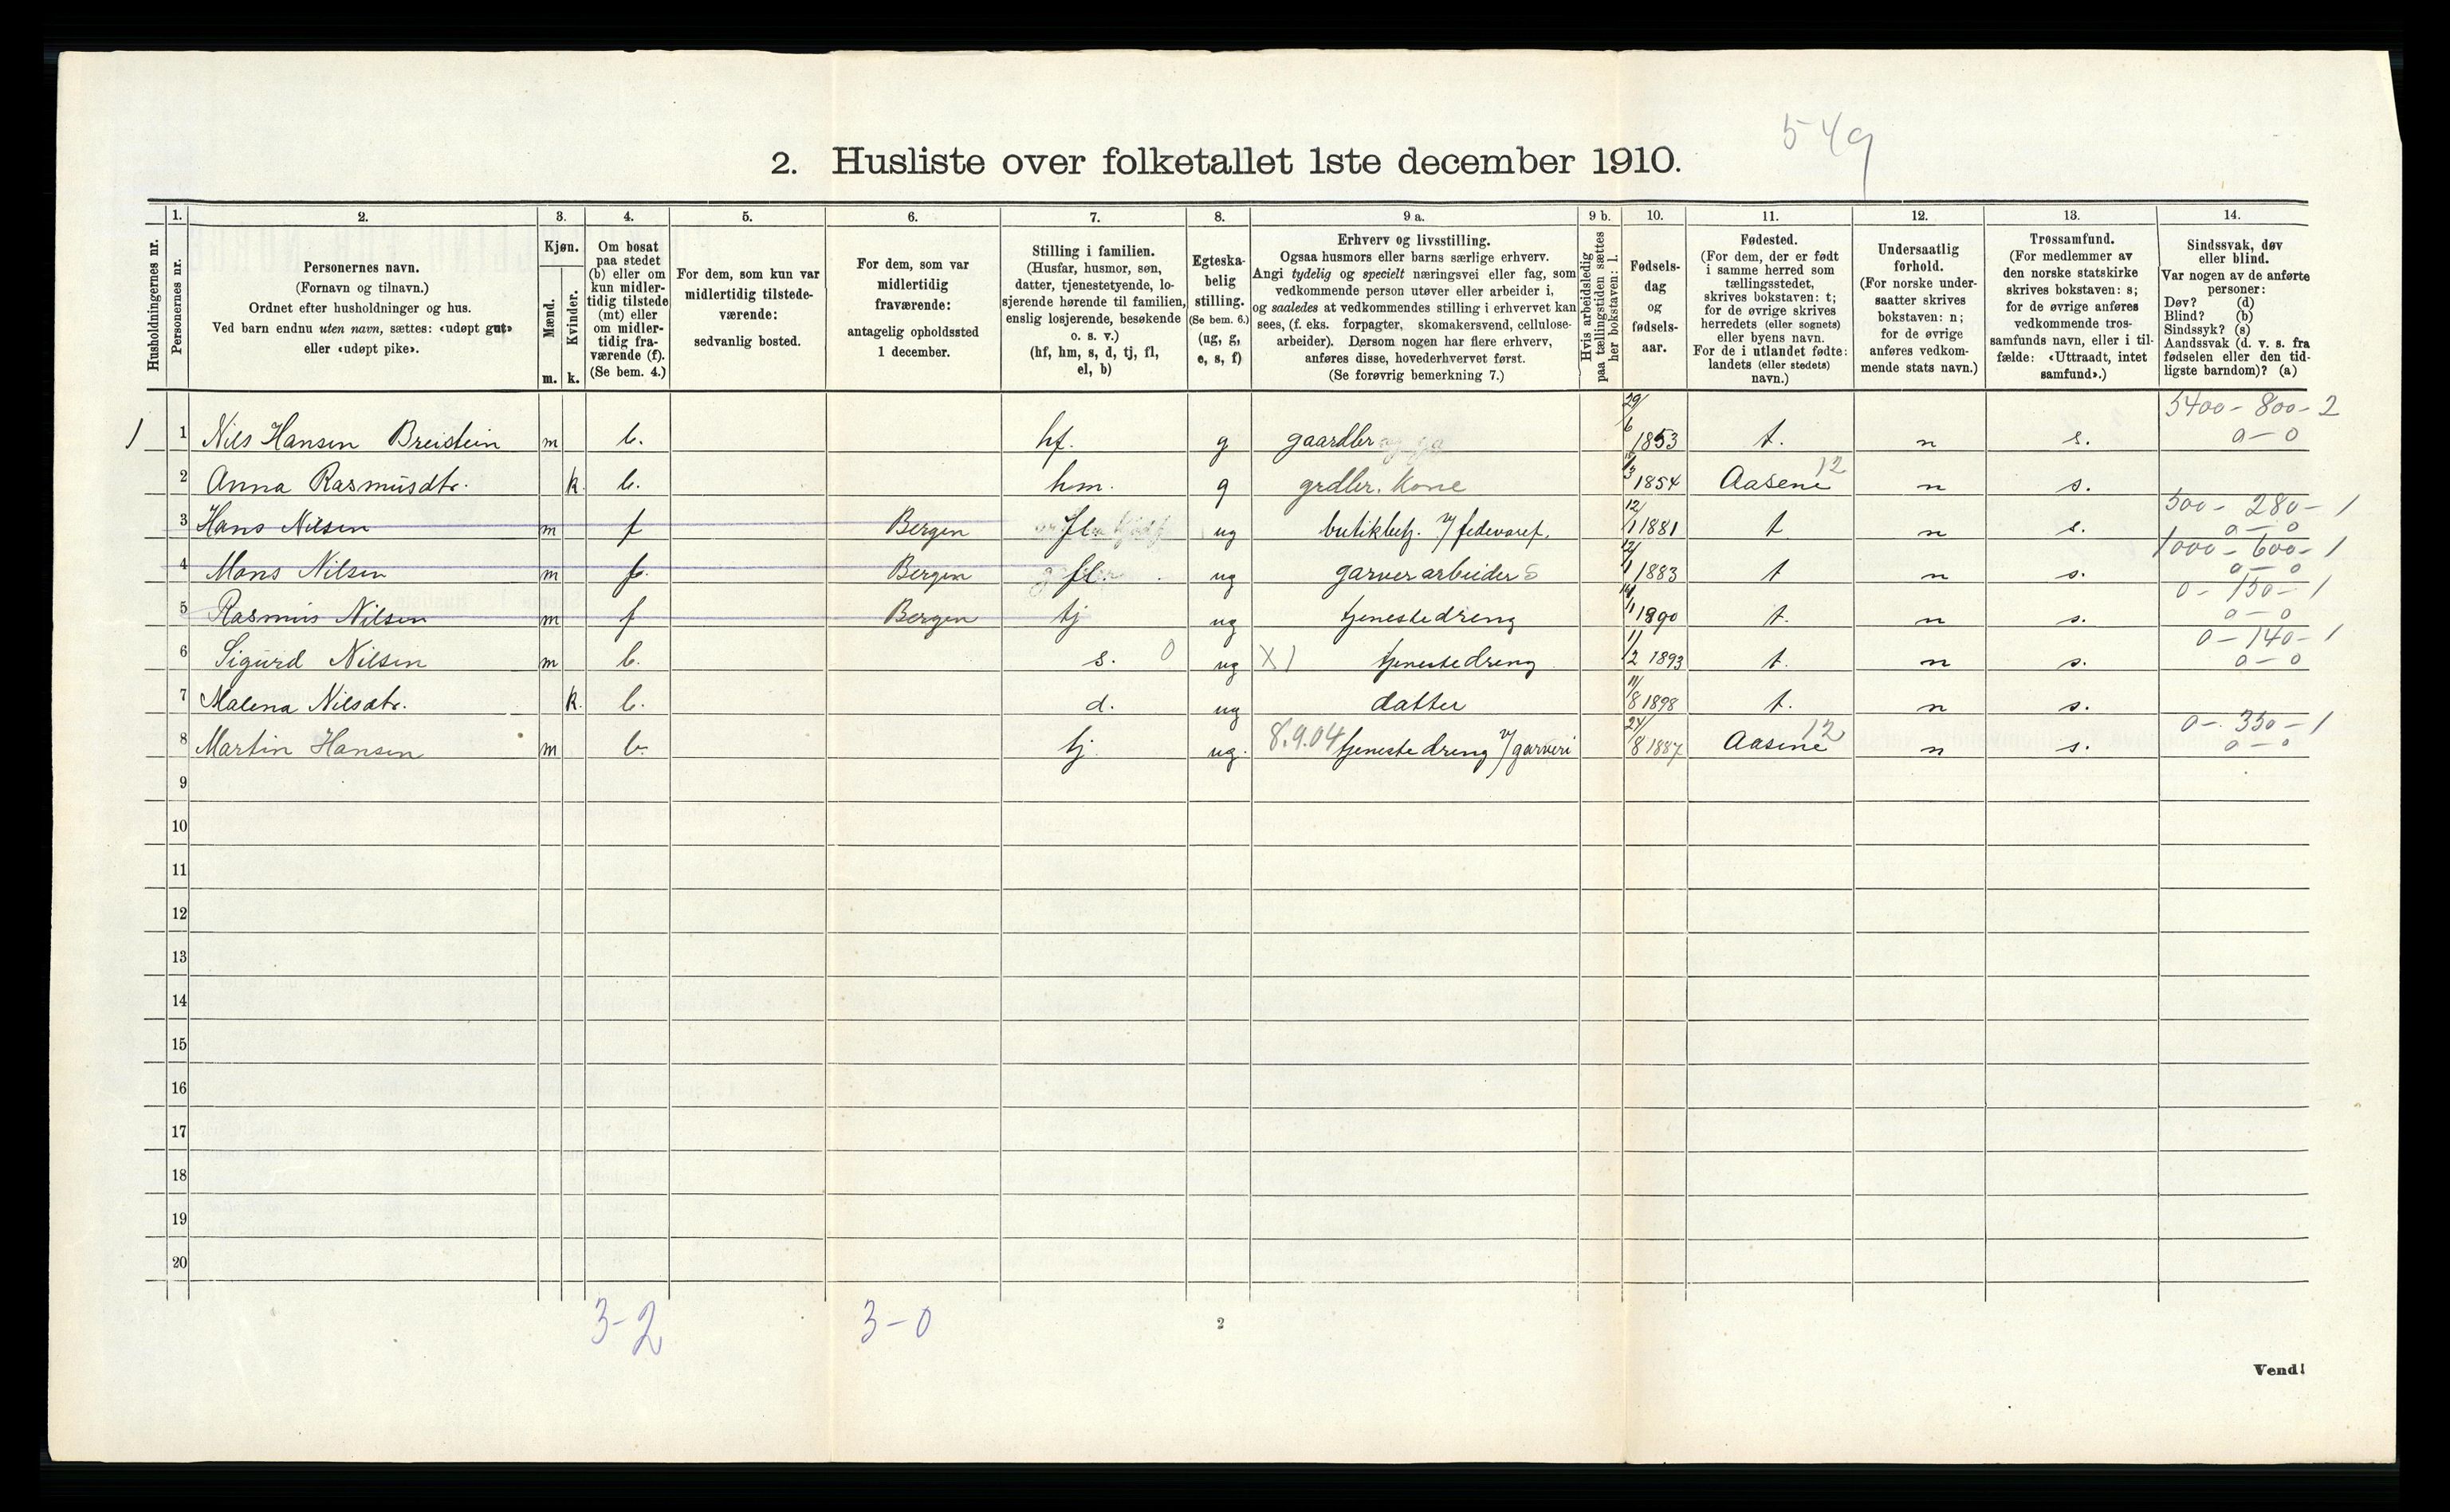 549
2. Husliste over folketallet 1ste december 1910.
Husholdningernes nr.
1. Personernes nr.
2. Personernes navn. (Fornavn og tilnavn.) Ordnet efter husholdninger og hus. Ved barn endnu uten navn, sættes: «udøpt gut» eller «udøpt pike».
3. Kjøn. Mænd. m. Kvinder. k.
4. Om bosat paa stedet (b) eller om kun midlertidig tilstede (mt) eller om midlertidig fraværende (f). (Se bem. 4.)
5. For dem, som kun var midlertidig tilstedeværende: sedvanlig bosted.
6. For dem, som var midlertidig fraværende: antagelig opholdssted 1 december.
7. Stilling i familien. (Husfar, husmor, søn, datter, tjenestetyende, losjerende hørende til familien, enslig losjerende, besøkende o. s. v.) (hf, hm, s, d, tj, fl, el, b)
8. Egteskabelig stilling. (Se bem. 6.) (ug, g, e, s, f)
9 a. Erhverv og livsstilling. Ogsaa husmors eller barns særlige erhverv. Angi tydelig og specielt næringsvei eller fag, som vedkommende person utøver eller arbeider i, og saaledes at vedkommendes stilling i erhvervet kan sees, (f. eks. forpagter, skomakersvend, cellulosearbeider). Dersom nogen har flere erhverv, anføres disse, hovederhvervet først. (Se forøvrig bemerkning 7.)
9 b. Hvis arbeidsledig paa tællingstiden sættes her bokstaven: l.
10. Fødselsdag og fødselsaar.
11. Fødested. (For dem, der er født i samme herred som tællingsstedet, skrives bokstaven: t; for de øvrige skrives herredets (eller sognets) eller byens navn. For de i utlandet fødte: landets (eller stedets) navn.)
12. Undersaatlig forhold. (For norske undersaatter skrives bokstaven: n; for de øvrige anføres vedkommende stats navn.)
13. Trossamfund. (For medlemmer av den norske statskirke skrives bokstaven: s; for de øvrige anføres vedkommende trossamfunds navn, eller i tilfælde: «Uttraadt, intet samfund».)
14. Sindssvak, døv eller blind. Var nogen av de anførte personer: Døv? (d) Blind? (b) Sindssyk? (s) Aandssvak (d. v. s. fra fødselen eller den tidligste barndom)? (a)
1 1 Nils Hansen Breistein m b. hf. g gaardbr 29/6 1853 t. n s. 5400-800-2 0-0
2 Anna Rasmusdtr. k b. hm. g grdbr. kone 3 1854 Aasene 12 n s.
3 Hans Nilsen m f Bergen fl ug butikbetj. v/ fedevaref. 12/1 1881 t n s. 500-280-1 0-0
4 Mons Nilsen m f. Bergen fl. ug garverarbeider 12/1 1883 t n s. 1000-600-1 0-0
5 Rasmus Nilsen m f Bergen tj ug tjenestedreng 14/1 1890 t. n s. 0-150-1 0-0
6 Sigurd Nilsen m b. s. 0 ug X1 tjenestedreng 11/2 1893 t. n s. 0-140-1 0-0
7 Malena Nilsdtr. k. b. d. ug datter 11/8 1898 t. n s.
8 Martin Hansen m b. tj. ug. 8.9.04 tjenestedreng v/ garveri 24/8 1887 Aasene 12 n s. 0-350-1 0-0
9
10
11
12
13
14
15
16
17
18
19
20
3-2 3-0
2
Vend!